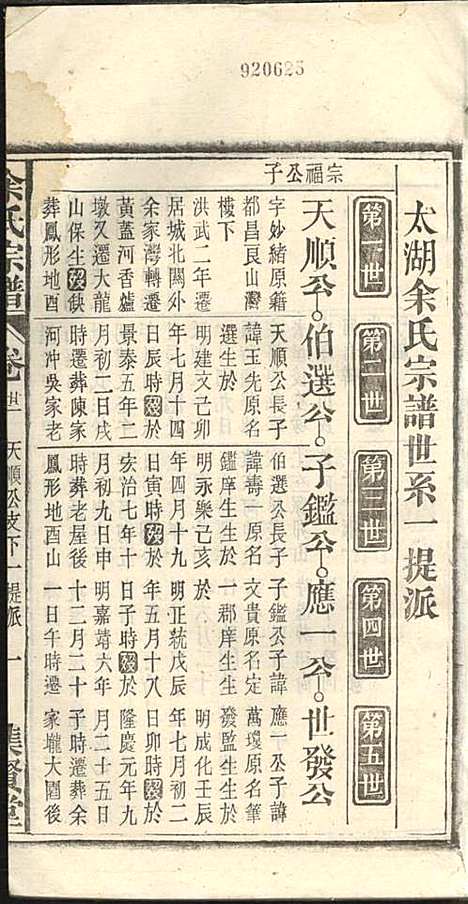 920625
太湖余氏宗譜世系一提派
第一世
第二世
第三世
第四世
第五世
宗福公子
天順公
伯選公
子鑑公
應一公
世發公
字妙緒原籍
都昌良山灣
樓下
洪武二年遷
居城北関外
余家灣轉遷
黃蓋河香爐
墩又遷大龍
山保生歿缺
葬鳳形地酉
天順公長子
諱玉先原名
選生於
明建文己卯
年七月十四
日辰時歿於
景泰五年二
月初二日戌
時遷葬陳家
河冲吳家老
伯選公長子
諱壽一原名
鑑庠生生於
明永樂己亥
年四月十九
日寅時歿於
宏治七年十
月初九日申
時葬老屋後
鳳形地酉山
子鑑公子諱
文貴原名定
一郡庠生生
於
明正統戊辰
年五月十八
日子時歿於
明嘉靖六年
十二月二十
一日午時遷
應一公子諱
萬瓊原名筆
發監生生於
明成化壬辰
年七月初二
日卯時歿於
隆慶元年九
月二十五日
子時遷葬余
家壠大園後
余氏宗譜
卷
天順公支下一提派
一
集賢堂